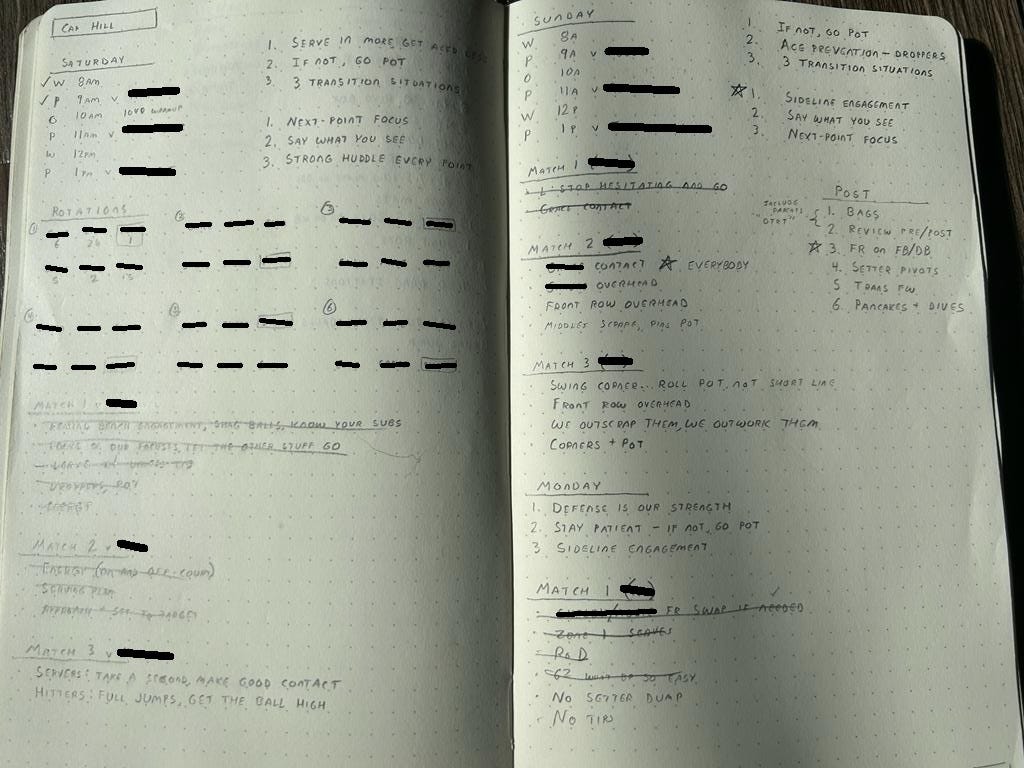 CAP HILL
SATURDAY
✓ W 8AM
✓ P 9AM v
O 10AM 10U0 WARMUP
P 11AM v
W 12PM
P 1PM v
1. SERVE IN MORE GET ACED LESS
2. IF NOT, GO POT
3. 3 TRANSITION SITUATIONS
1. NEXT-POINT FOCUS
2. SAY WHAT YOU SEE
3. STRONG HUDDLE EVERY POINT
ROTATIONS
① ② ③
6 24 1
5 2 13
④ ⑤ ⑥
MATCH 1 v
BENCH ENGAGEMENT, SHAG BALLS, KNOW YOUR SUBS
FOCUS ON OUR FOCUSES, LET THE OTHER STUFF GO
DROPPERS, POT
ENERGY
MATCH 2 v
ENERGY (ON AND OFF COURT)
SERVING PLAN
APPROACH + SET TO TARGET
MATCH 3 v
SERVERS: TAKE A SECOND, MAKE GOOD CONTACT
HITTERS: FULL JUMPS, GET THE BALL HIGH
SUNDAY
W 8A
P 9A v
O 10A
P 11A v
W 12P
P 1P v
1. IF NOT, GO POT
2. ACE PREVENTION - DROPPERS
3. 3 TRANSITION SITUATIONS
☆ 1. SIDELINE ENGAGEMENT
2. SAY WHAT YOU SEE
3. NEXT-POINT FOCUS
MATCH 1
L: STOP HESITATING AND GO
CONTACT
MATCH 2
CONTACT ☆ EVERYBODY
OVERHEAD
FRONT ROW OVERHEAD
MIDDLES SCRAPE, PINS POT
POST
INCLUDE PARENTS
1. BAGS
2. REVIEW PRE/POST
☆ 3. FR ON FB/DB
4. SETTER PIVOTS
5 TRANS FW
6. PANCAKES + DIVES
MATCH 3
SWING CORNER... ROLL POT, NOT SHORT LINE
FRONT ROW OVERHEAD
WE OUTSCRAP THEM, WE OUTWORK THEM
CORNERS + POT
MONDAY
1. DEFENSE IS OUR STRENGTH
2. STAY PATIENT - IF NOT, GO POT
3. SIDELINE ENGAGEMENT
MATCH 1
FR SWAP IF NEEDED ✓
ZONE 1 SERVES
R6D
G2 WON'T BE SO EASY
NO SETTER DUMP
NO TIP